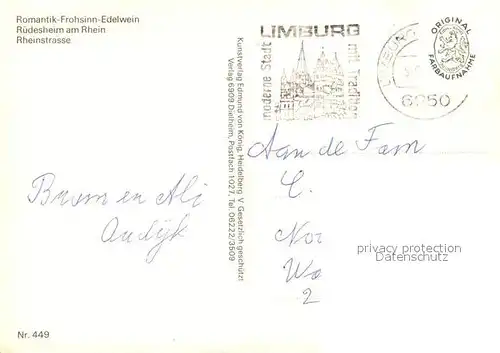 Romantik-Frohsinn-Edelwein
Rüdesheim am Rhein
Rheinstrasse
LIMBURG
moderne Stadt
mit Tradition
LIMBURG
6250
ORIGINAL
FARBAUFNAHME
Kunstverlag Edmund von König, Heidelberg V Gesetzlich geschützt
Verlag 6909 Dielheim, Postfach 1027, Tel. 06222/3509
Aan de Fam
C.
Noi
Wa
2
Bram en Ali
Andijk
privacy protection
Datenschutz
Nr. 449